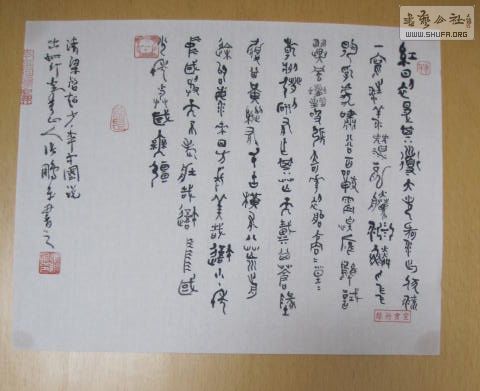 书艺公社
WWW.SHUFA.ORG
紅日初升其道大光河出伏流
一瀉汪洋潛龍騰淵鱗爪飛
揚乳虎嘯谷百獸震惶鷹隼試
翼風塵吸張奇花初胎矞=皇=
乾將發硎有作其芒天戴其蒼地
履其黃縱有千古橫有八荒前
途似海來日方長美哉我少年
中國與天不老壯哉我中國
少年與國無疆
清梁啓超少年中國說
山人張鵬年書之